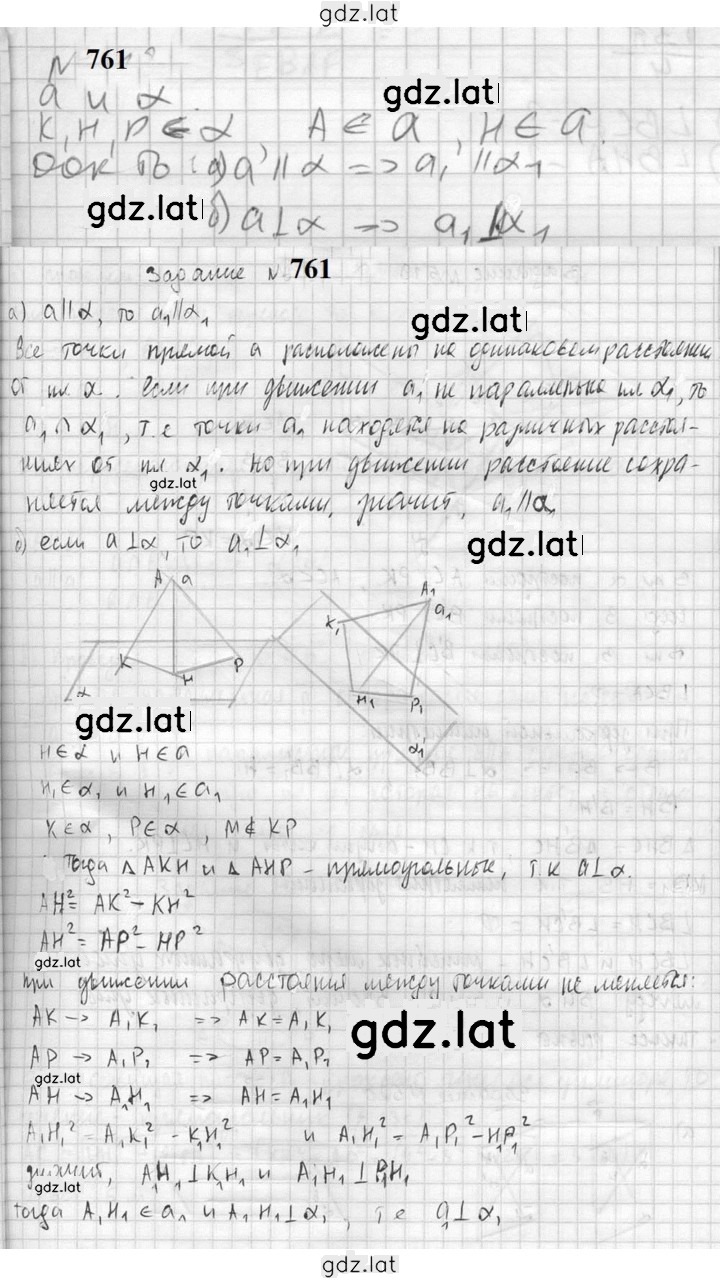 gdz.lat
№ 761
a и α.
K, H, P ∈ α    A ∈ a, H ∈ a.
gdz.lat
Док-ть: а) a ∥ α => a₁ ∥ α₁
gdz.lat
б) a ⊥ α => a₁ ⊥ α₁
Задание № 761
а) a ∥ α, то a₁ ∥ α₁
gdz.lat
Все точки прямой a расположены на одинаковом расстоянии
от пл α. Если при движении a₁ не параллельна пл α₁, то
a₁ ∩ α₁, т.е точки a₁ находятся на различных расстоя-
ниях от пл α₁. Но при движении расстояние сохра-
gdz.lat
няется между точками, значит, a₁ ∥ α₁
б) если a ⊥ α, то a₁ ⊥ α₁
gdz.lat
A a A₁ a₁
K₁
K H P
α
H₁ P₁
gdz.lat
α₁
H ∈ α и H ∈ a
H₁ ∈ α₁ и H₁ ∈ a₁
K ∈ α, P ∈ α, M ∉ KP
Тогда △ AKH и △ AHP - прямоугольные, т к a ⊥ α.
AH² = AK² - KH²
AH² = AP² - HP²
gdz.lat
При движении расстояния между точками не меняется:
AK -> A₁K₁ => AK = A₁K₁
gdz.lat
AP -> A₁P₁ => AP = A₁P₁
gdz.lat
AH -> A₁H₁ => AH = A₁H₁
A₁H₁² = A₁K₁² - K₁H₁² и A₁H₁² = A₁P₁² - H₁P₁²
значит, A₁H₁ ⊥ K₁H₁ и A₁H₁ ⊥ P₁H₁
gdz.lat
тогда A₁H₁ ∈ a₁ и A₁H₁ ⊥ α₁, т е a₁ ⊥ α₁
gdz.lat